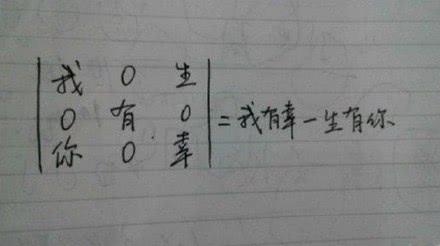 我 0 生
0 有 0 = 我有幸一生有你
你 0 幸